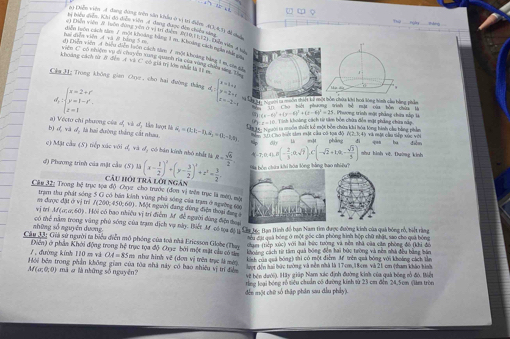 a) Diễn viên A đang đứng trên sân khấu ở vị trí điểm A(3;4;1)
bị biểu diễn. Khi đó diễn viên A đang được đèn chiếu sáng.
c) Diễn viên B luôn đứng yên ở vị trí điểm B(10;13;12). Diễn viên A
diễn luôn cách tâm I một khoảng bằng 1 m. Khoảng cách ngắn nhất giữa
hai diễn viên A và B bằng 5 m.
d) Diễn viên A biểu diễn luôn cách tâm I một khoảng bằng 1 m, còn
viên C có nhiệm vụ di chuyển xung quanh rìa của vùng chiếu sáng. Tổng
khoảng cách từ B đến A và C có giá trị lớn nhất là 11 m.
Câu 31: Trong không gian Oxyz, cho hai đường thẳng d₁: {x = 1 + t
y = 2 + t
z = -2 - t
d₂: {x = 2 + t'
y = 1 - t'
z = 1
a) Véctơ chỉ phương của d₁ và d₂ lần lượt là u₁ = (1;1;-1), u₂ = (1;-1;0).
b) d₁ và d₂ là hai đường thẳng cắt nhau.
c) Mặt cầu (S) tiếp xúc với d₁ và d₂ có bán kính nhỏ nhất là R = √6/2
d) Phương trình của mặt cầu (S) là (x - 3/2)² + (y - 3/2)² + z² = 3/2
CÂU HỎI TRẢ LỜI NGẮN
Câu 32: Trong hệ trục tọa độ Oxyz cho trước (đơn vị trên trục là mét), một
trạm thu phát sóng 5 G có bán kính vùng phủ sóng của trạm ở ngưỡng 600
m được đặt ở vị trí I(200;450;60). Một người đang dùng điện thoại đang ở
vị trí M(a;a;60). Hỏi có bao nhiêu vị trí điểm M để người dùng điện thoại
có thể nằm trong vùng phủ sóng của trạm dịch vụ này. Biết M có tọa độ là
những số nguyên dương.
Câu 33: Giả sử người ta biểu diễn mô phỏng của toà nhà Ericsson Globe (Thụy
Điển) ở phần Khởi động trong hệ trục tọa độ Oxyz bởi một mặt cầu có tâm
I, đường kính 110 m và OA = 85 m như hình vẽ (đơn vị trên trục là mét).
Hỏi bên trong phần không gian của tòa nhà này có bao nhiêu vị trí điểm
M(a;0;0) mà a là những số nguyên?
Câu 34: Người ta muốn thiết kế một bồn chứa khí hoá lỏng hình cầu bằng phần
mềm 3D. Cho biết phương trình bề mặt của bồn chứa là
(S): (x-6)² + (y-6)² + (z-6)² = 25. Phương trình mặt phẳng nắp là
(P): z = 10. Tính khoảng cách từ tâm bồn chứa đến mặt phẳng nắp.
Câu 35: Người ta muốn thiết kế một bồn chứa khí hóa lỏng hình cầu bằng phần
mềm 3D. Cho biết tâm mặt cầu có tọa độ I(2;3;4) và mặt cầu tiếp xúc với
nắp đậy là mặt phẳng đi qua ba điểm
như hình vẽ. Đường kính
của bồn chứa khí hóa lỏng bằng bao nhiêu?
Câu 36: Bạn Bình đố bạn Nam tìm được đường kính của quả bóng rổ, biết rằng
nếu đặt quả bóng ở một góc căn phòng hình hộp chữ nhật, sao cho quả bóng
chạm (tiếp xúc) với hai bức tường và nền nhà của căn phòng đó (khi đó
khoảng cách từ tâm quả bóng đến hai bức tường và nền nhà đều bằng bán
kính của quả bóng) thì có một điểm M trên quả bóng với khoảng cách lần
lượt đến hai bức tường và nền nhà là 17cm,18cm và 21 cm (tham khảo hình
vẽ bên dưới). Hãy giúp Nam xác định đường kính của quả bóng rổ đó. Biết
rằng loại bóng rổ tiêu chuẩn có đường kính từ 23 cm đến 24,5cm (làm tròn
đến một chữ số thập phân sau dấu phẩy).